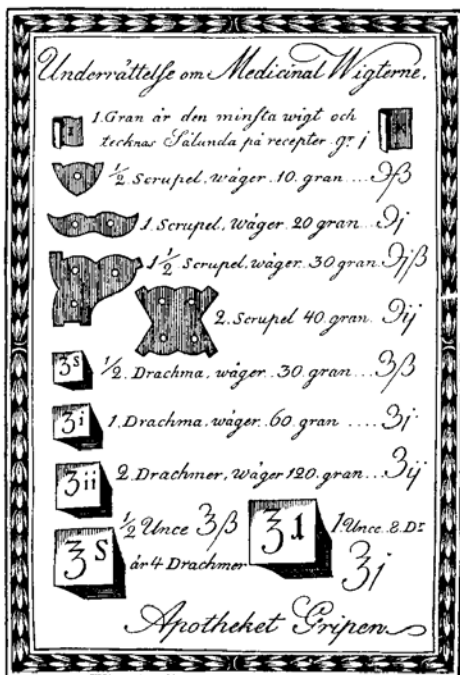 Underråttelse om Medicinal Wigterne.
1. Gran år den minsta wigt och
tecknas Sålunda på recepter. gr j
½ Scrupel. wåger. 10. gran .... ℈ß
1. Scrupel. wåger 20 gran .... ℈j
1½ Scrupel. wåger. 30 gran. ℈jß
2. Scrupel 40. gran. ℈ij
ʒs ½. Drachma. wåger. 30. gran ... ʒß
ʒi 1. Drachma. wåger. 60. gran .... ʒj.
ʒii 2. Drachmer, wåger 120. gran ... ʒij
½ Unce ℥ß 1. Unce. 8. Dr
℥s år 4 Drachmer ℥1 ℥j
Apotheket Gripen